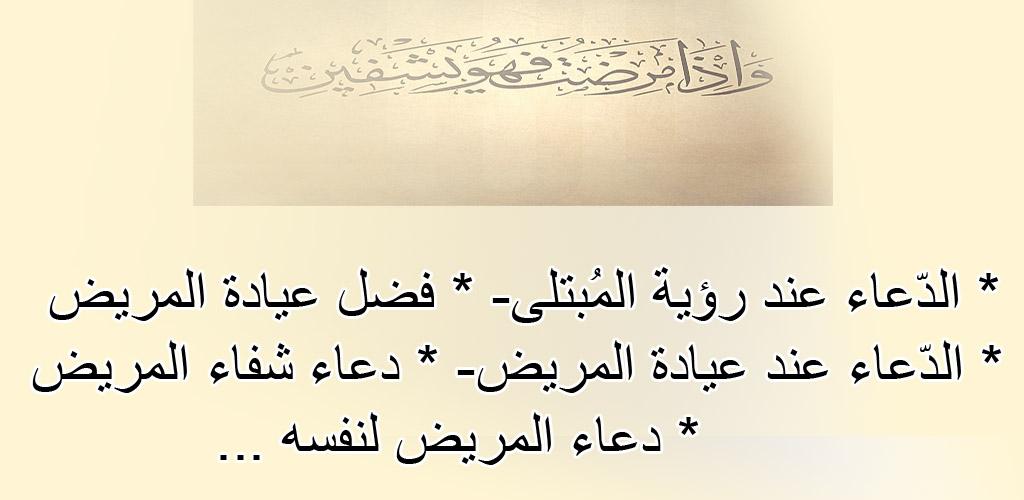 وَإِذَا مَرِضْتُ فَهُوَ يَشْفِينِ
* الدّعاء عند رؤية المُبتلى- * فضل عيادة المريض
* الدّعاء عند عيادة المريض- * دعاء شفاء المريض
* دعاء المريض لنفسه ...